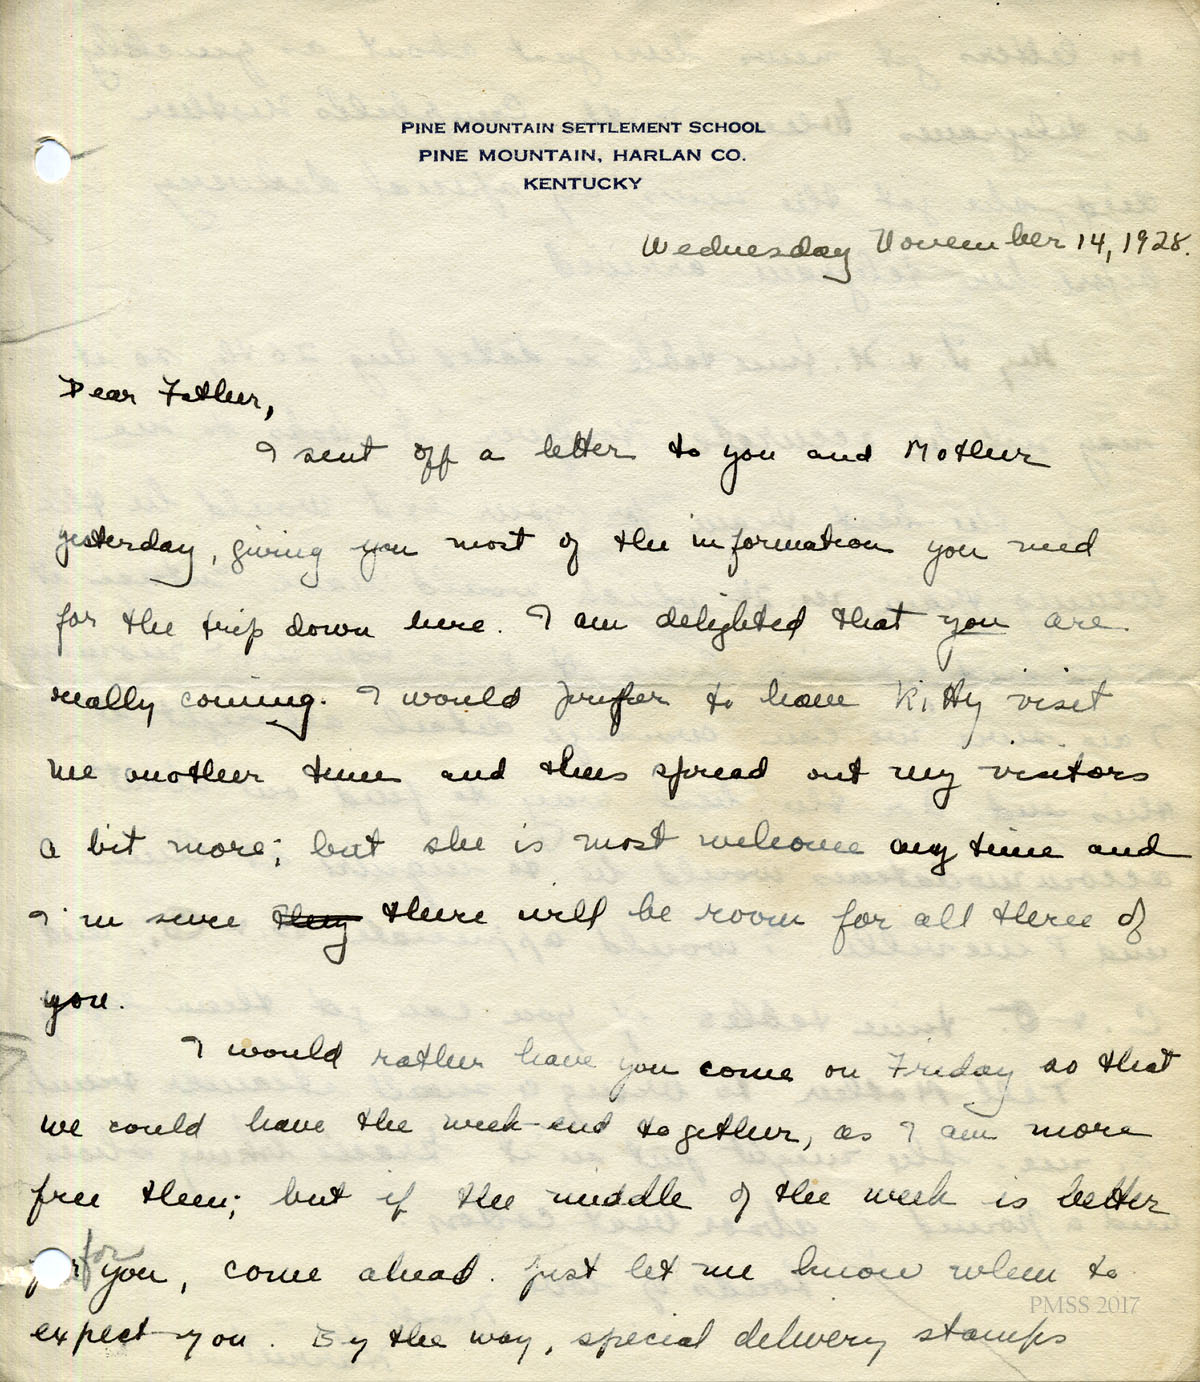 PINE MOUNTAIN SETTLEMENT SCHOOL
PINE MOUNTAIN, HARLAN CO.
KENTUCKY
Wednesday November 14, 1928.
Dear Father,
I sent off a letter to you and Mother
yesterday, giving you most of the information you need
for the trip down here. I am delighted that you are
really coming. I would prefer to have Kitty visit
me another time and thus spread out my visitors
a bit more; but she is most welcome any time and
I'm sure they there will be room for all three of
you.
I would rather have you come on Friday so that
we could have the week-end together, as I am more
free then; but if the middle of the week is better
for you, come ahead. Just let me know when to
expect you. By the way, special delivery stamps
PMSS 2017